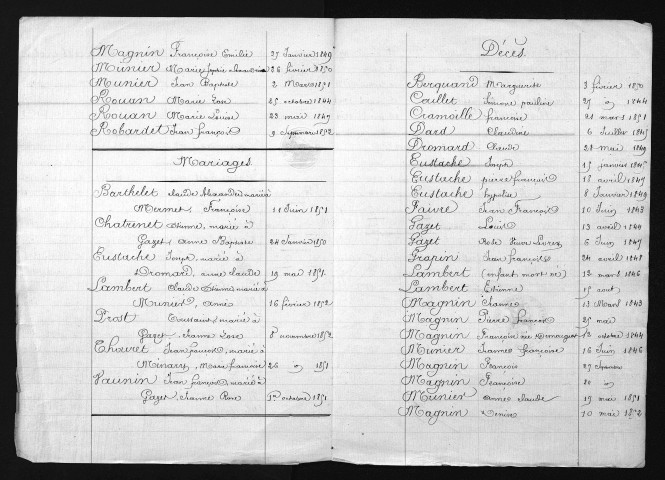 Magnin Françoise Emilie 27 Janvier 1849
Munier Marie 26 février 1850
Munier Jean Baptiste 2 Mars 1851
Rouan Marie Rose 25 octobre 1844
Rouan Marie Louise 23 mai 1847
Robardet Jean françois 9 Septembre 1852
Mariages.
Barthelet Claude Alexandre marié à
Mermet, Françoise 11 Juin 1851
Chatrenet Etienne, marié à
Gazet, Anne Baptiste 24 Janvier 1850
Eustache Joseph, marié à
Dromard, anne claude 19 mai 1851.
Lambert Claude Etienne marié à
Munier, Anne 16 février 1852
Prost Toussaint, marié à
Gazet, Jeanne Rose 8 novembre 1852.
Thouret Jean françois, marié à
Minary, Marie françoise 26 1851
Vaunin Jean françois, marié à
Gazet, Jeanne Rose 1er octobre 1851
Décès.
Berguand Marguerite 3 février 1850
Caillet Simone pauline 27 1844
Cramoille françoise 21 mars 1851
Dard Claudine 6 Juillet 1845
Dromard Claude 21 mai 1849
Eustache Joseph 15 janvier 1845
Eustache pierre françois 18 avril 1847
Eustache hypolite 8 Janvier 1849
Faivre Jean François 10 Juin 1843
Gazet Louis 13 avril 1844
Gazet Rose 6 Juin 1847
Grapin Jean françois 24 avril 1848
Lambert (enfant mort né) 12 mars 1846
Lambert Etienne 15 aout
Magnin Jeanne 13 Mars 1843
Magnin Pierre françois 25 mai
Magnin Françoise née 12 octobre 1844
Munier Jeanne françoise 16 Juin 1846
Magnin François 27
Magnin Françoise 30
Munier Anne claude 19 mai 1851
Magnin Denise 10 mai 1852